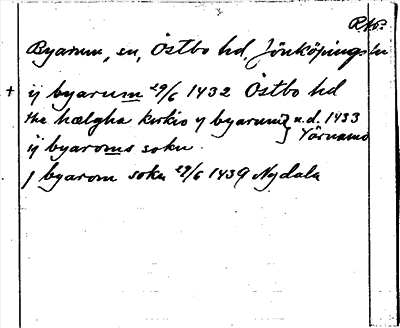 RAp.
Byarum, sn, Östbo hd, Jönköpings län
+ ij byarum 29/6 1432 Östbo hd
the hælgha kirkio y byarum } u.d. 1433
ij byaroms sokn. Värnamo
j byarom sokn 29/6 1439 Nydala